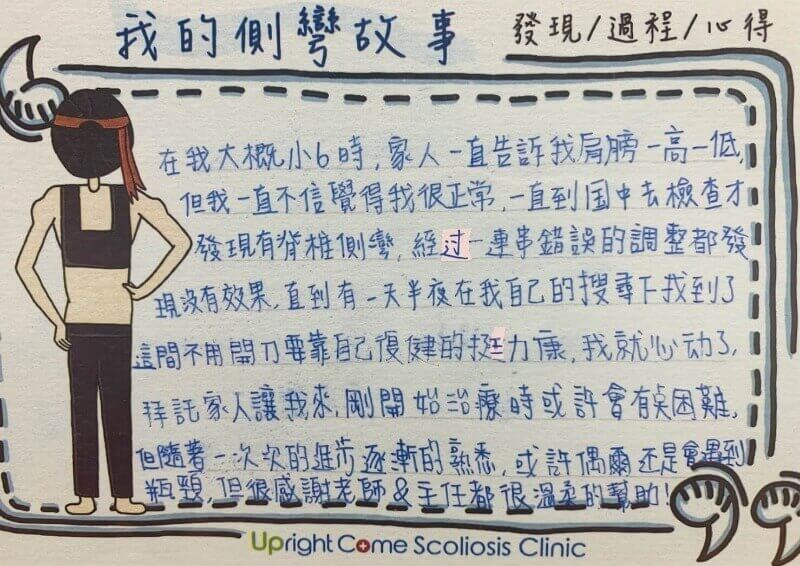 我的側彎故事 發現/過程/心得
在我大概小6時,家人一直告訴我肩膀一高一低,
但我一直不信覺得我很正常,一直到国中去檢查才
發現有脊椎側彎,經过一連串錯誤的調整都發
現沒有效果,直到有一天半夜在我自己的搜尋下找到了
這間不用開刀要靠自己復健的挺力康,我就心动了,
拜託家人讓我來,剛開始治療時或許會有点困難,
但隨著一次次的進步逐漸的熟悉,或許偶爾还是會遇到
瓶頸,但很感謝老師&主任都很溫柔的幫助!
Upright Come Scoliosis Clinic